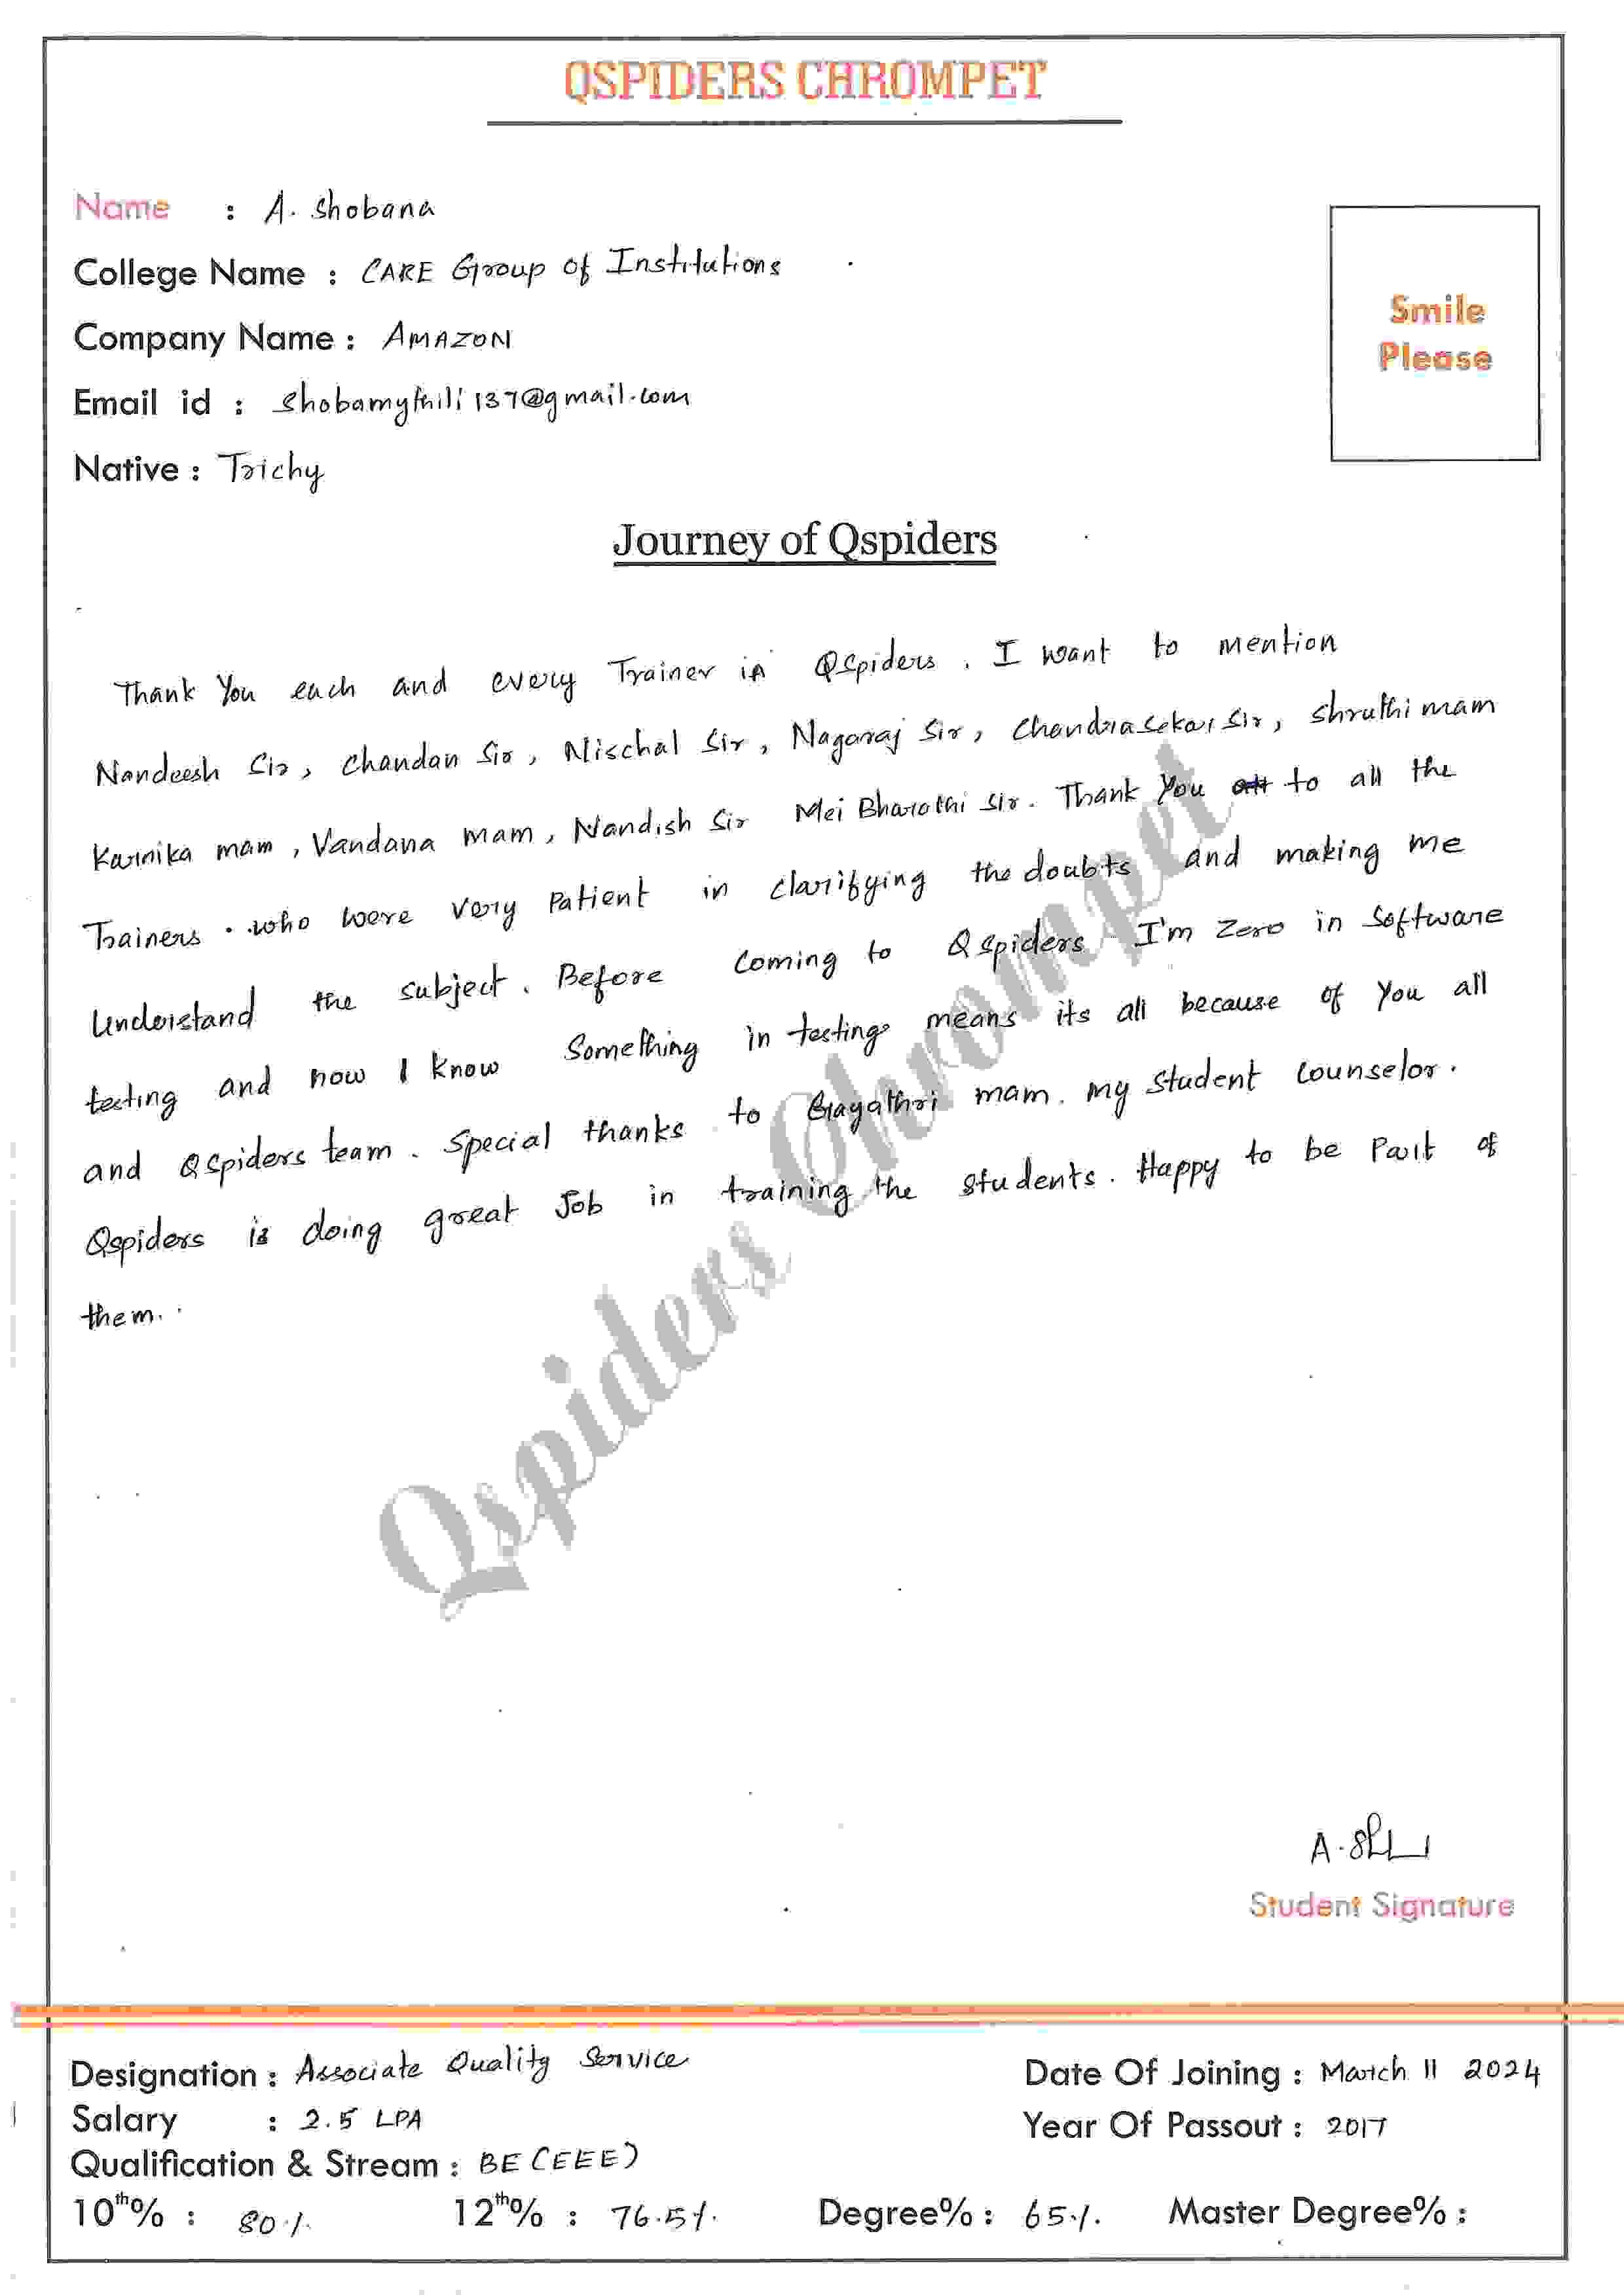 QSPIDERS CHROMPET
Name : A. Shobana
College Name : CARE Group of Institutions
Company Name : AMAZON
Email id : Shobamythili137@gmail.com
Native : Trichy
Smile
Please
Journey of Qspiders
Thank You each and every Trainer in QSpiders. I want to mention
Nandeesh Sir, Chandan Sir, Nischal Sir, Nagaraj Sir, Chandrasekar Sir, Shruthi mam
Karnika mam, Vandana mam, Nandish Sir Mei Bharathi Sir. Thank You to all the
Trainers. who were very Patient in clarifying the doubts and making me
Understand the subject. Before coming to QSpiders I'm zero in Software
testing and now I know Something in testing means its all because of You all
and QSpiders team. Special thanks to Gayathri mam. my student counselor.
Qspiders is doing great Job in training the students. Happy to be Part of
them.
Qspiders Chrompet
A.Sh
Student Signature
Designation : Associate Quality Service
Date Of Joining : March 11 2024
Salary : 2.5 LPA
Year Of Passout : 2017
Qualification & Stream : BE (EEE)
10th% : 80% 12th% : 76.5% Degree% : 65% Master Degree% :